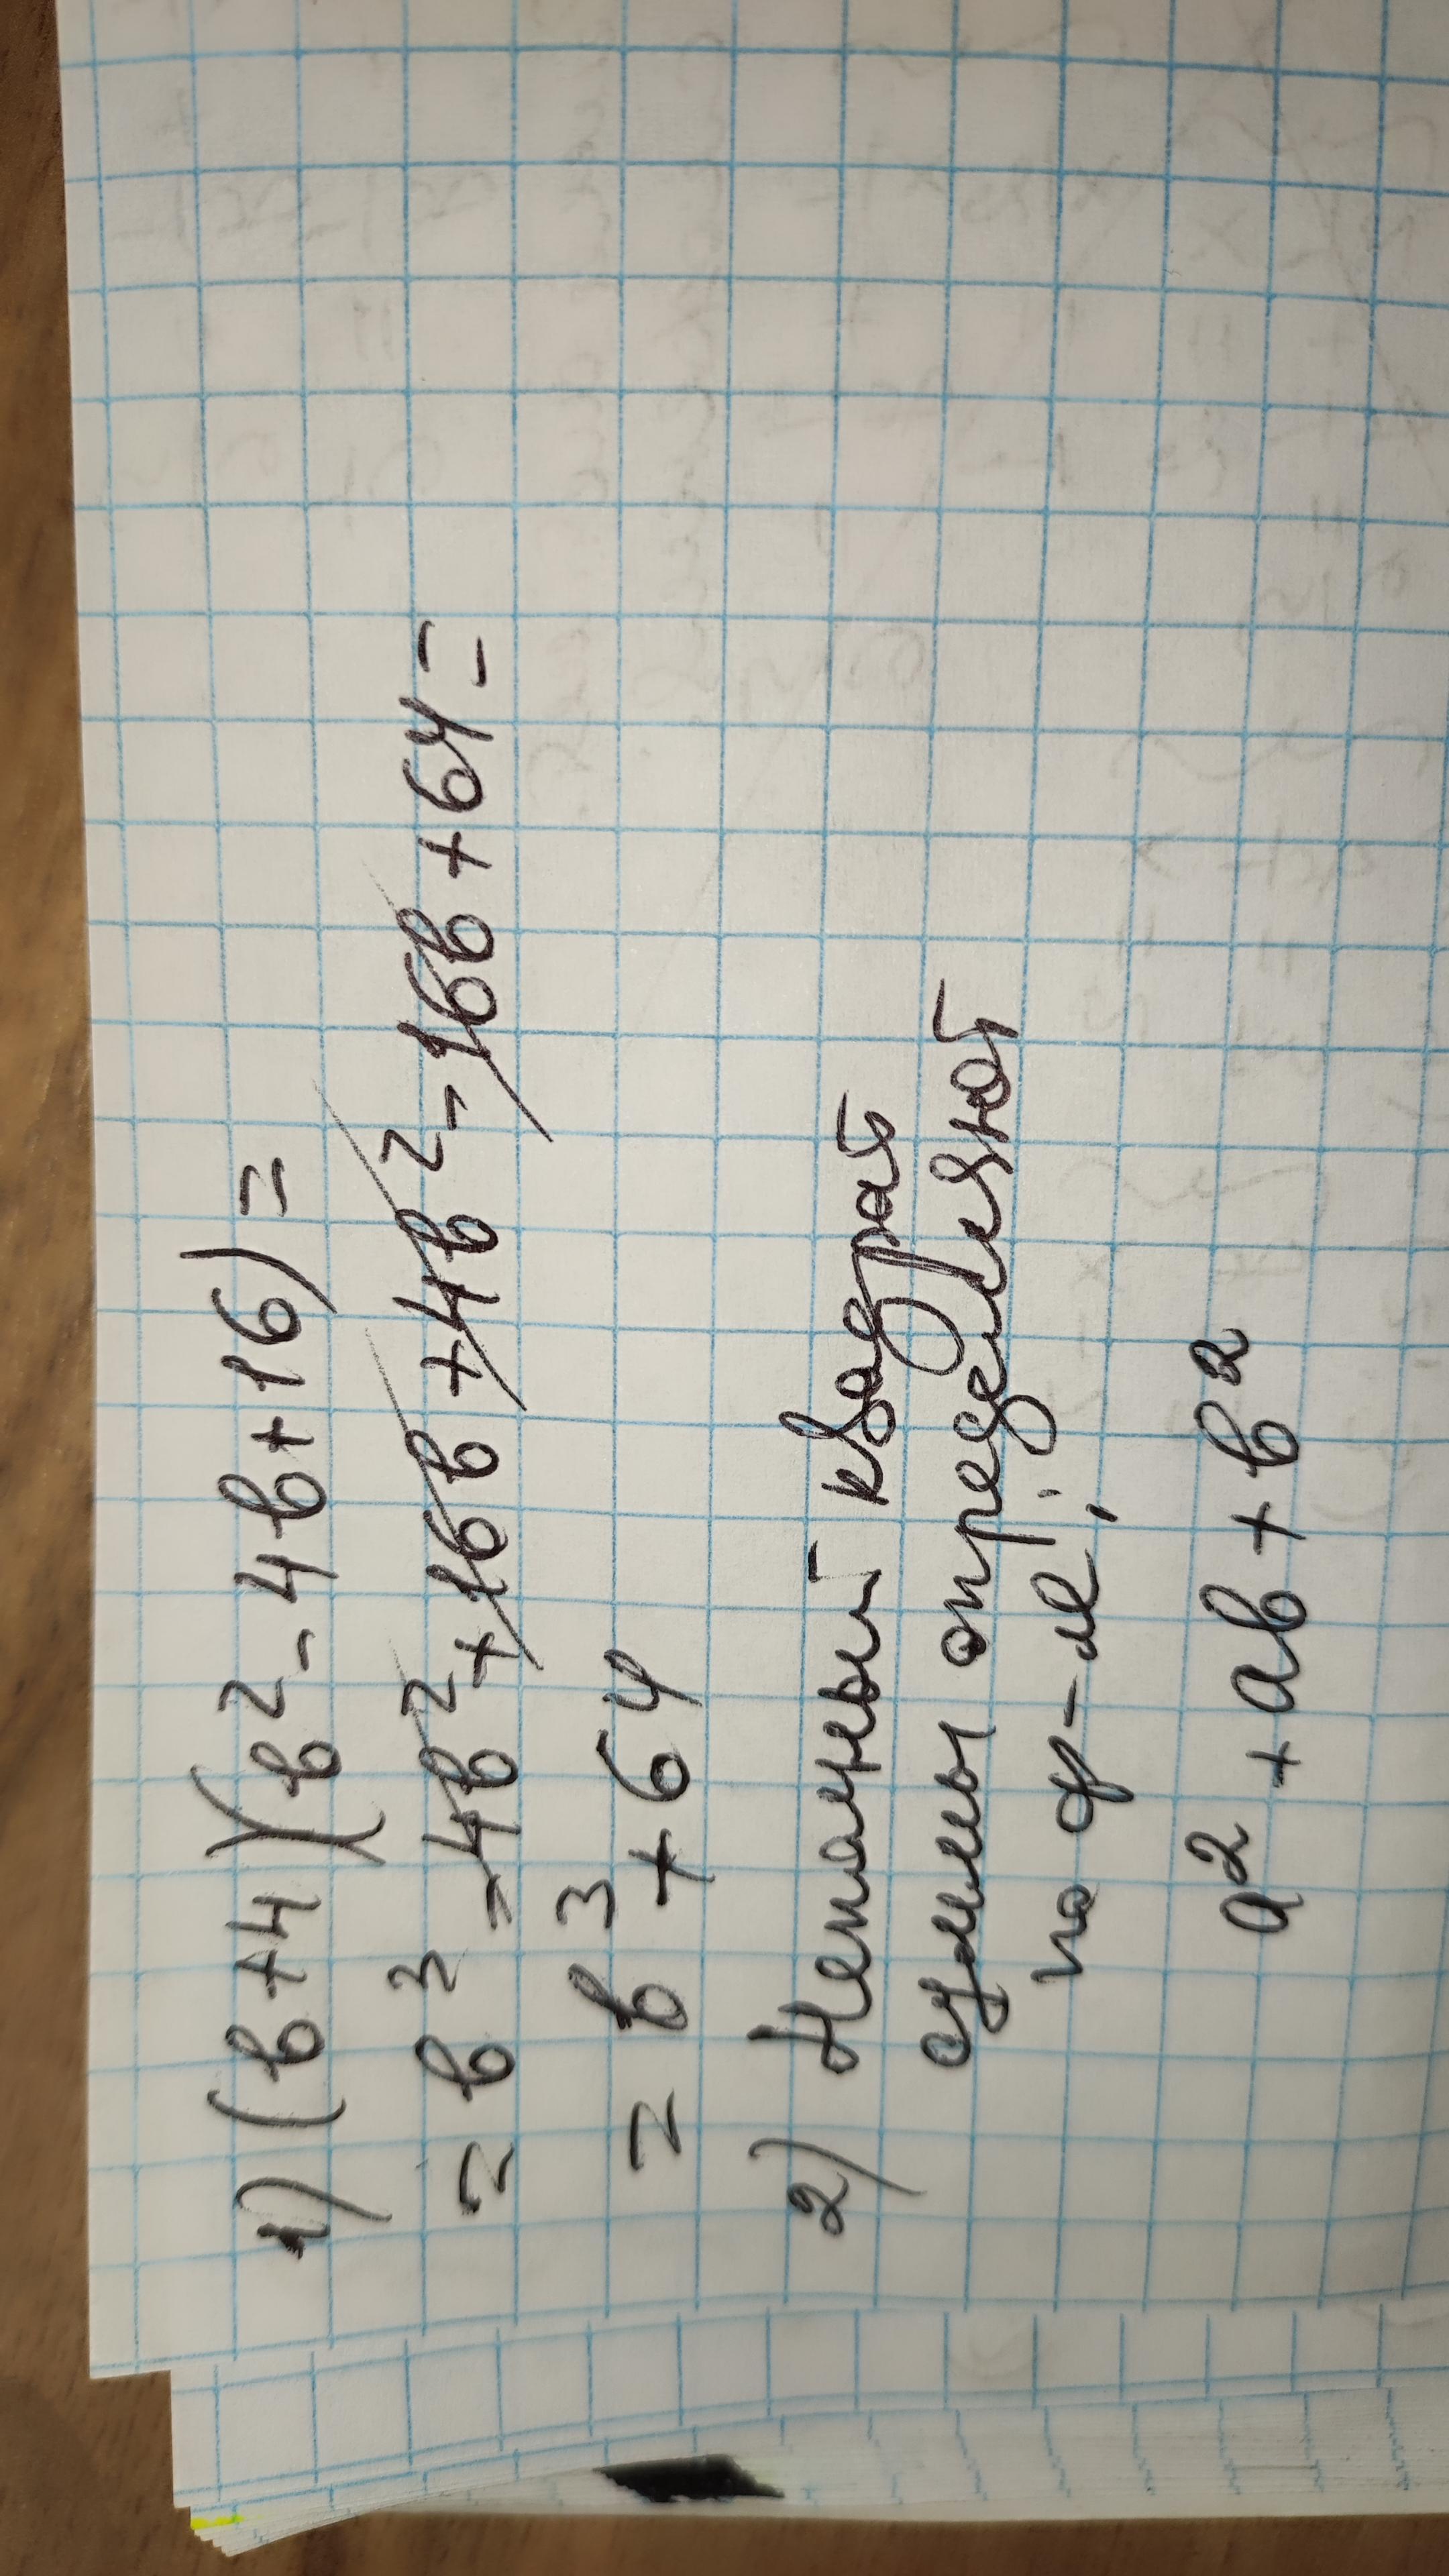 1) (в+4)(в²-4в+16)=
= в³ -4в²+16в+4в²-16в+64=
= в³+64
2) Неполный квадрат
суммы определяют
по ф-ле:
a²+aв+в²